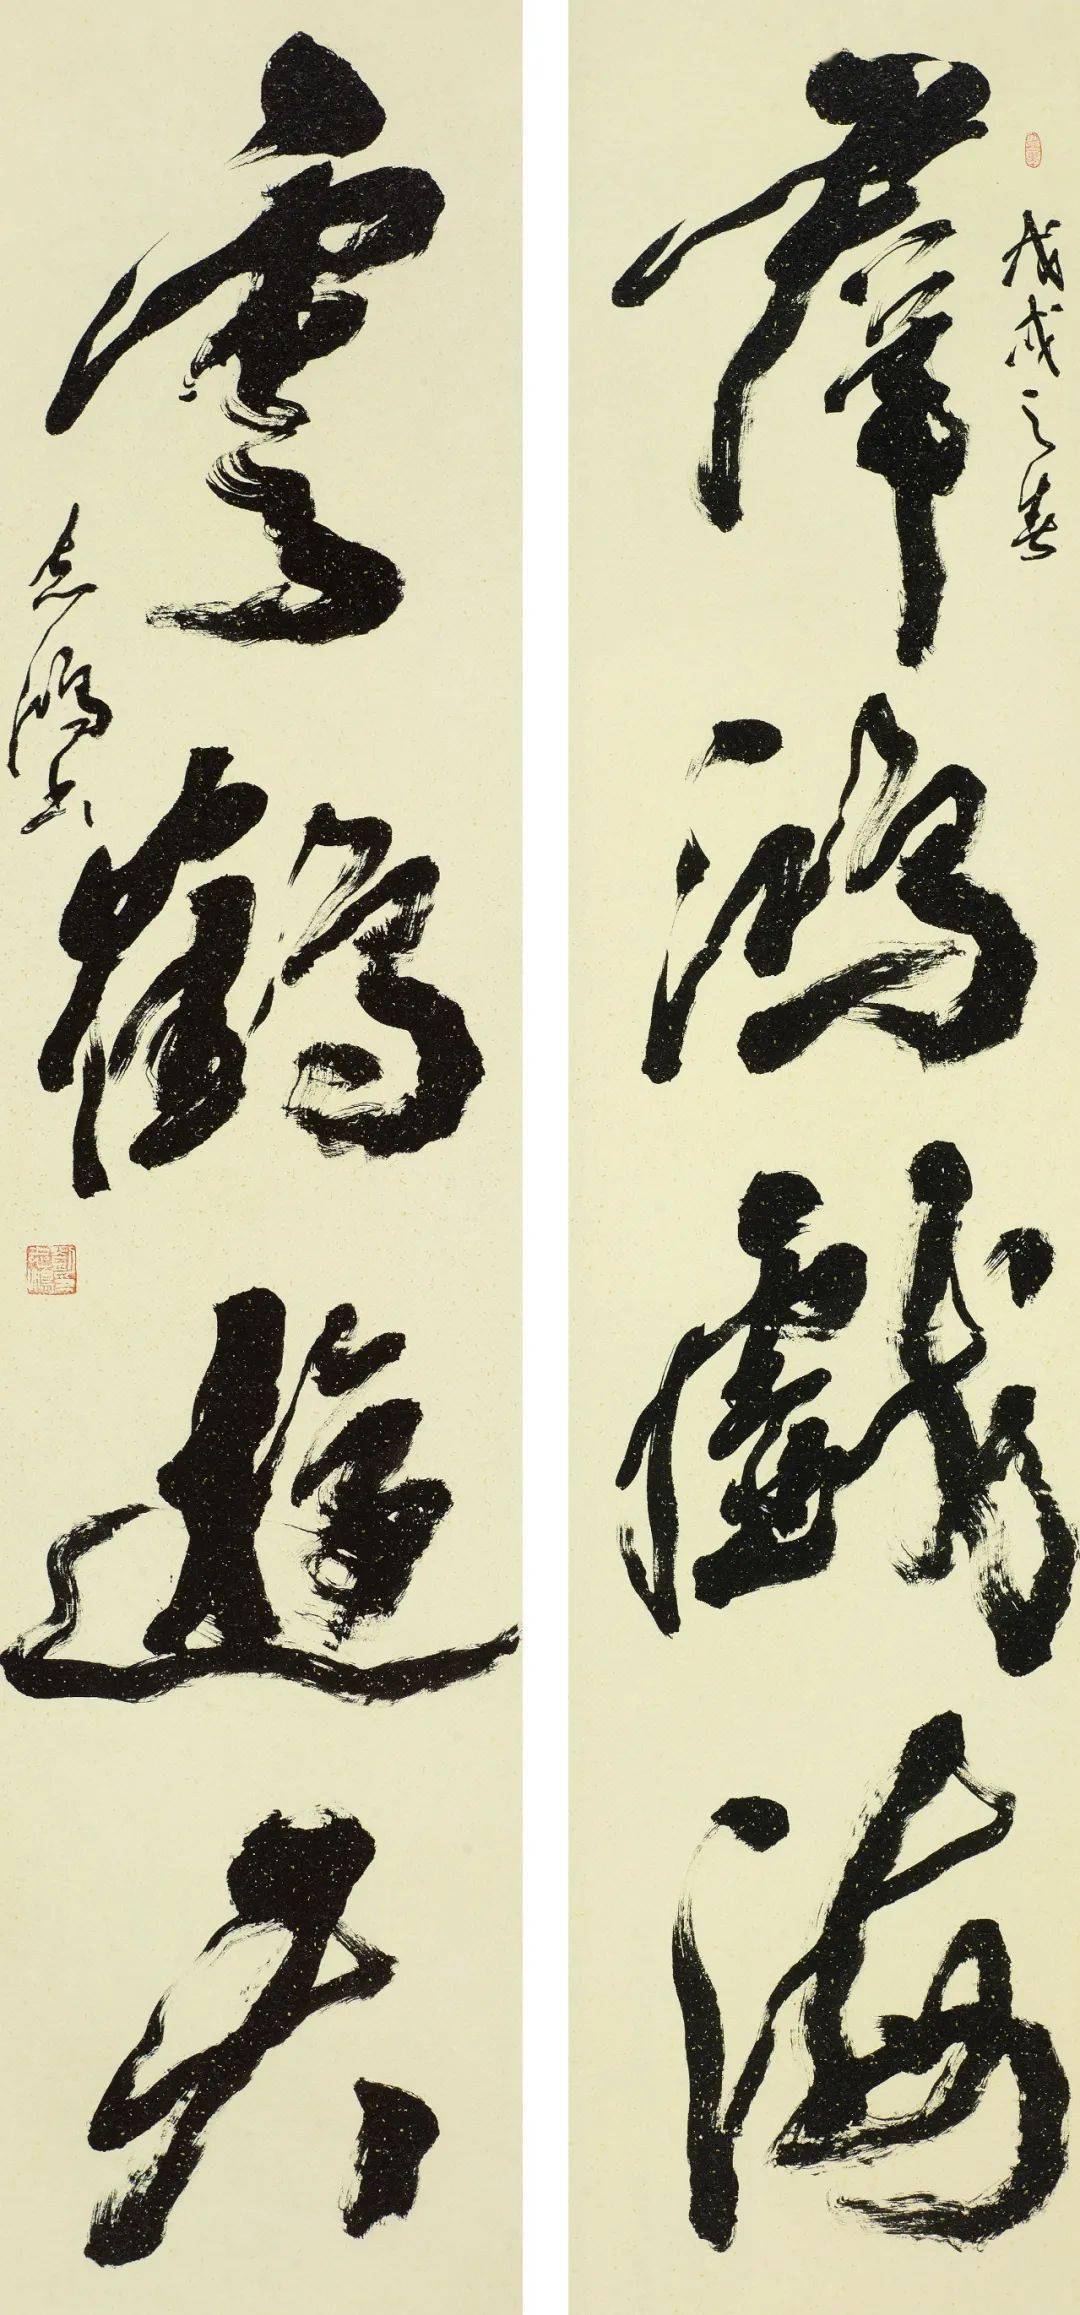 戊戌之春
羣鴻戲海
雲鶴遊天
志鴻書